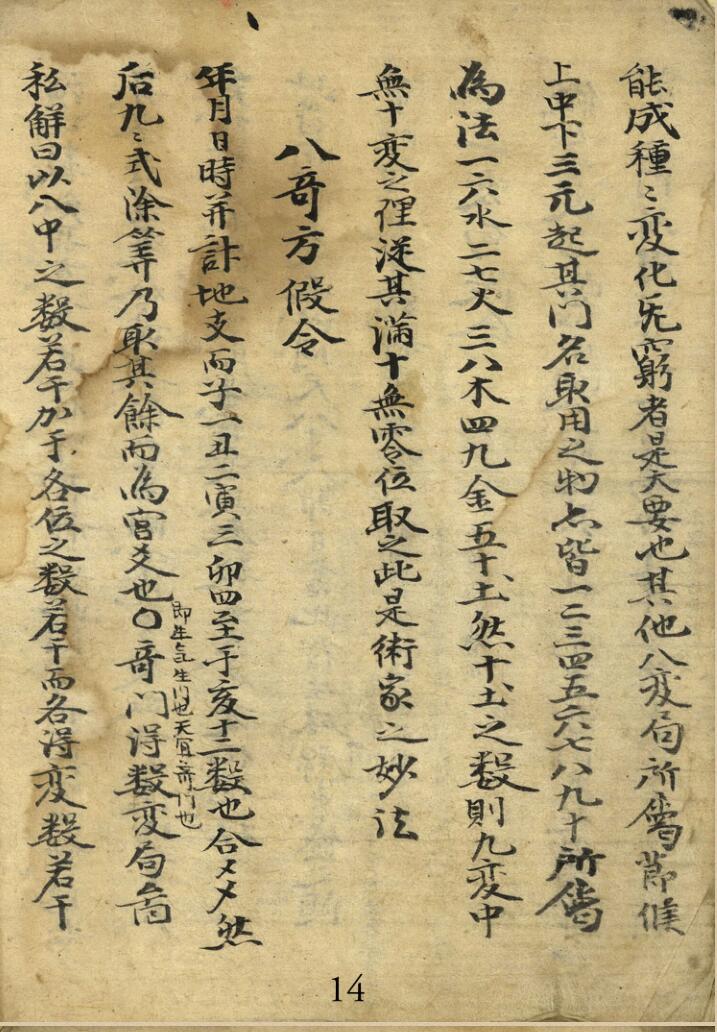 能成種〻変化旡窮者是大要也其他八変局所傋節候
上中下三元起其門名取用之物亦皆一二三四五六七八九十所傋
為法一六水二七火三八木四九金五十土然十土之数則九変中
無十変之俚從其満十無零位取之此是術家之妙法
八竒方假令
年月日時并計地支而子一丑二寅三卯四至于亥十二数也合〤〤然
后九〻式除筭乃取其餘而為宮爻也〇竒门得数変局
即生气生门也天冝竒门也
私解曰以八中之数若干加于各位之数若干而各得変数若干
14